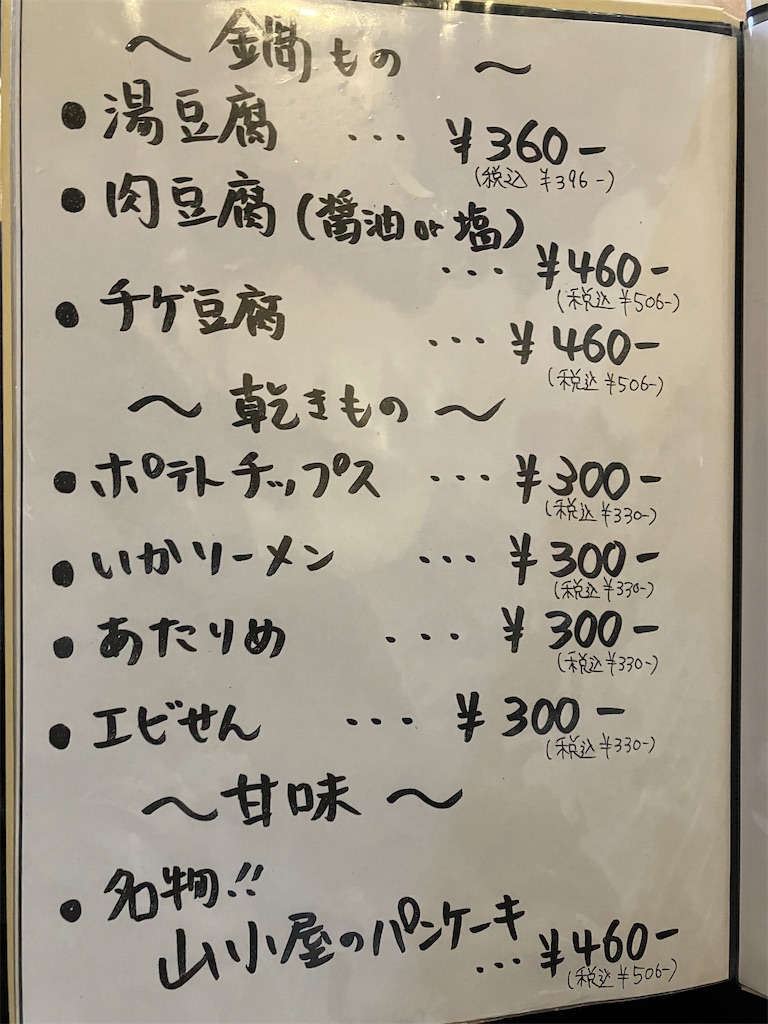 〜 鍋もの 〜
● 湯豆腐 ... ¥360-
(税込 ¥396-)
● 肉豆腐 (醤油or塩)
... ¥460-
(税込 ¥506-)
● チゲ豆腐 ... ¥460-
(税込 ¥506-)
〜 乾きもの 〜
● ポテトチップス ... ¥300-
(税込 ¥330-)
● いかソーメン ... ¥300-
(税込 ¥330-)
● あたりめ ... ¥300-
(税込 ¥330-)
● エビせん ... ¥300-
(税込 ¥330-)
〜 甘味 〜
● 名物!!
山小屋のパンケーキ
... ¥460-
(税込 ¥506-)